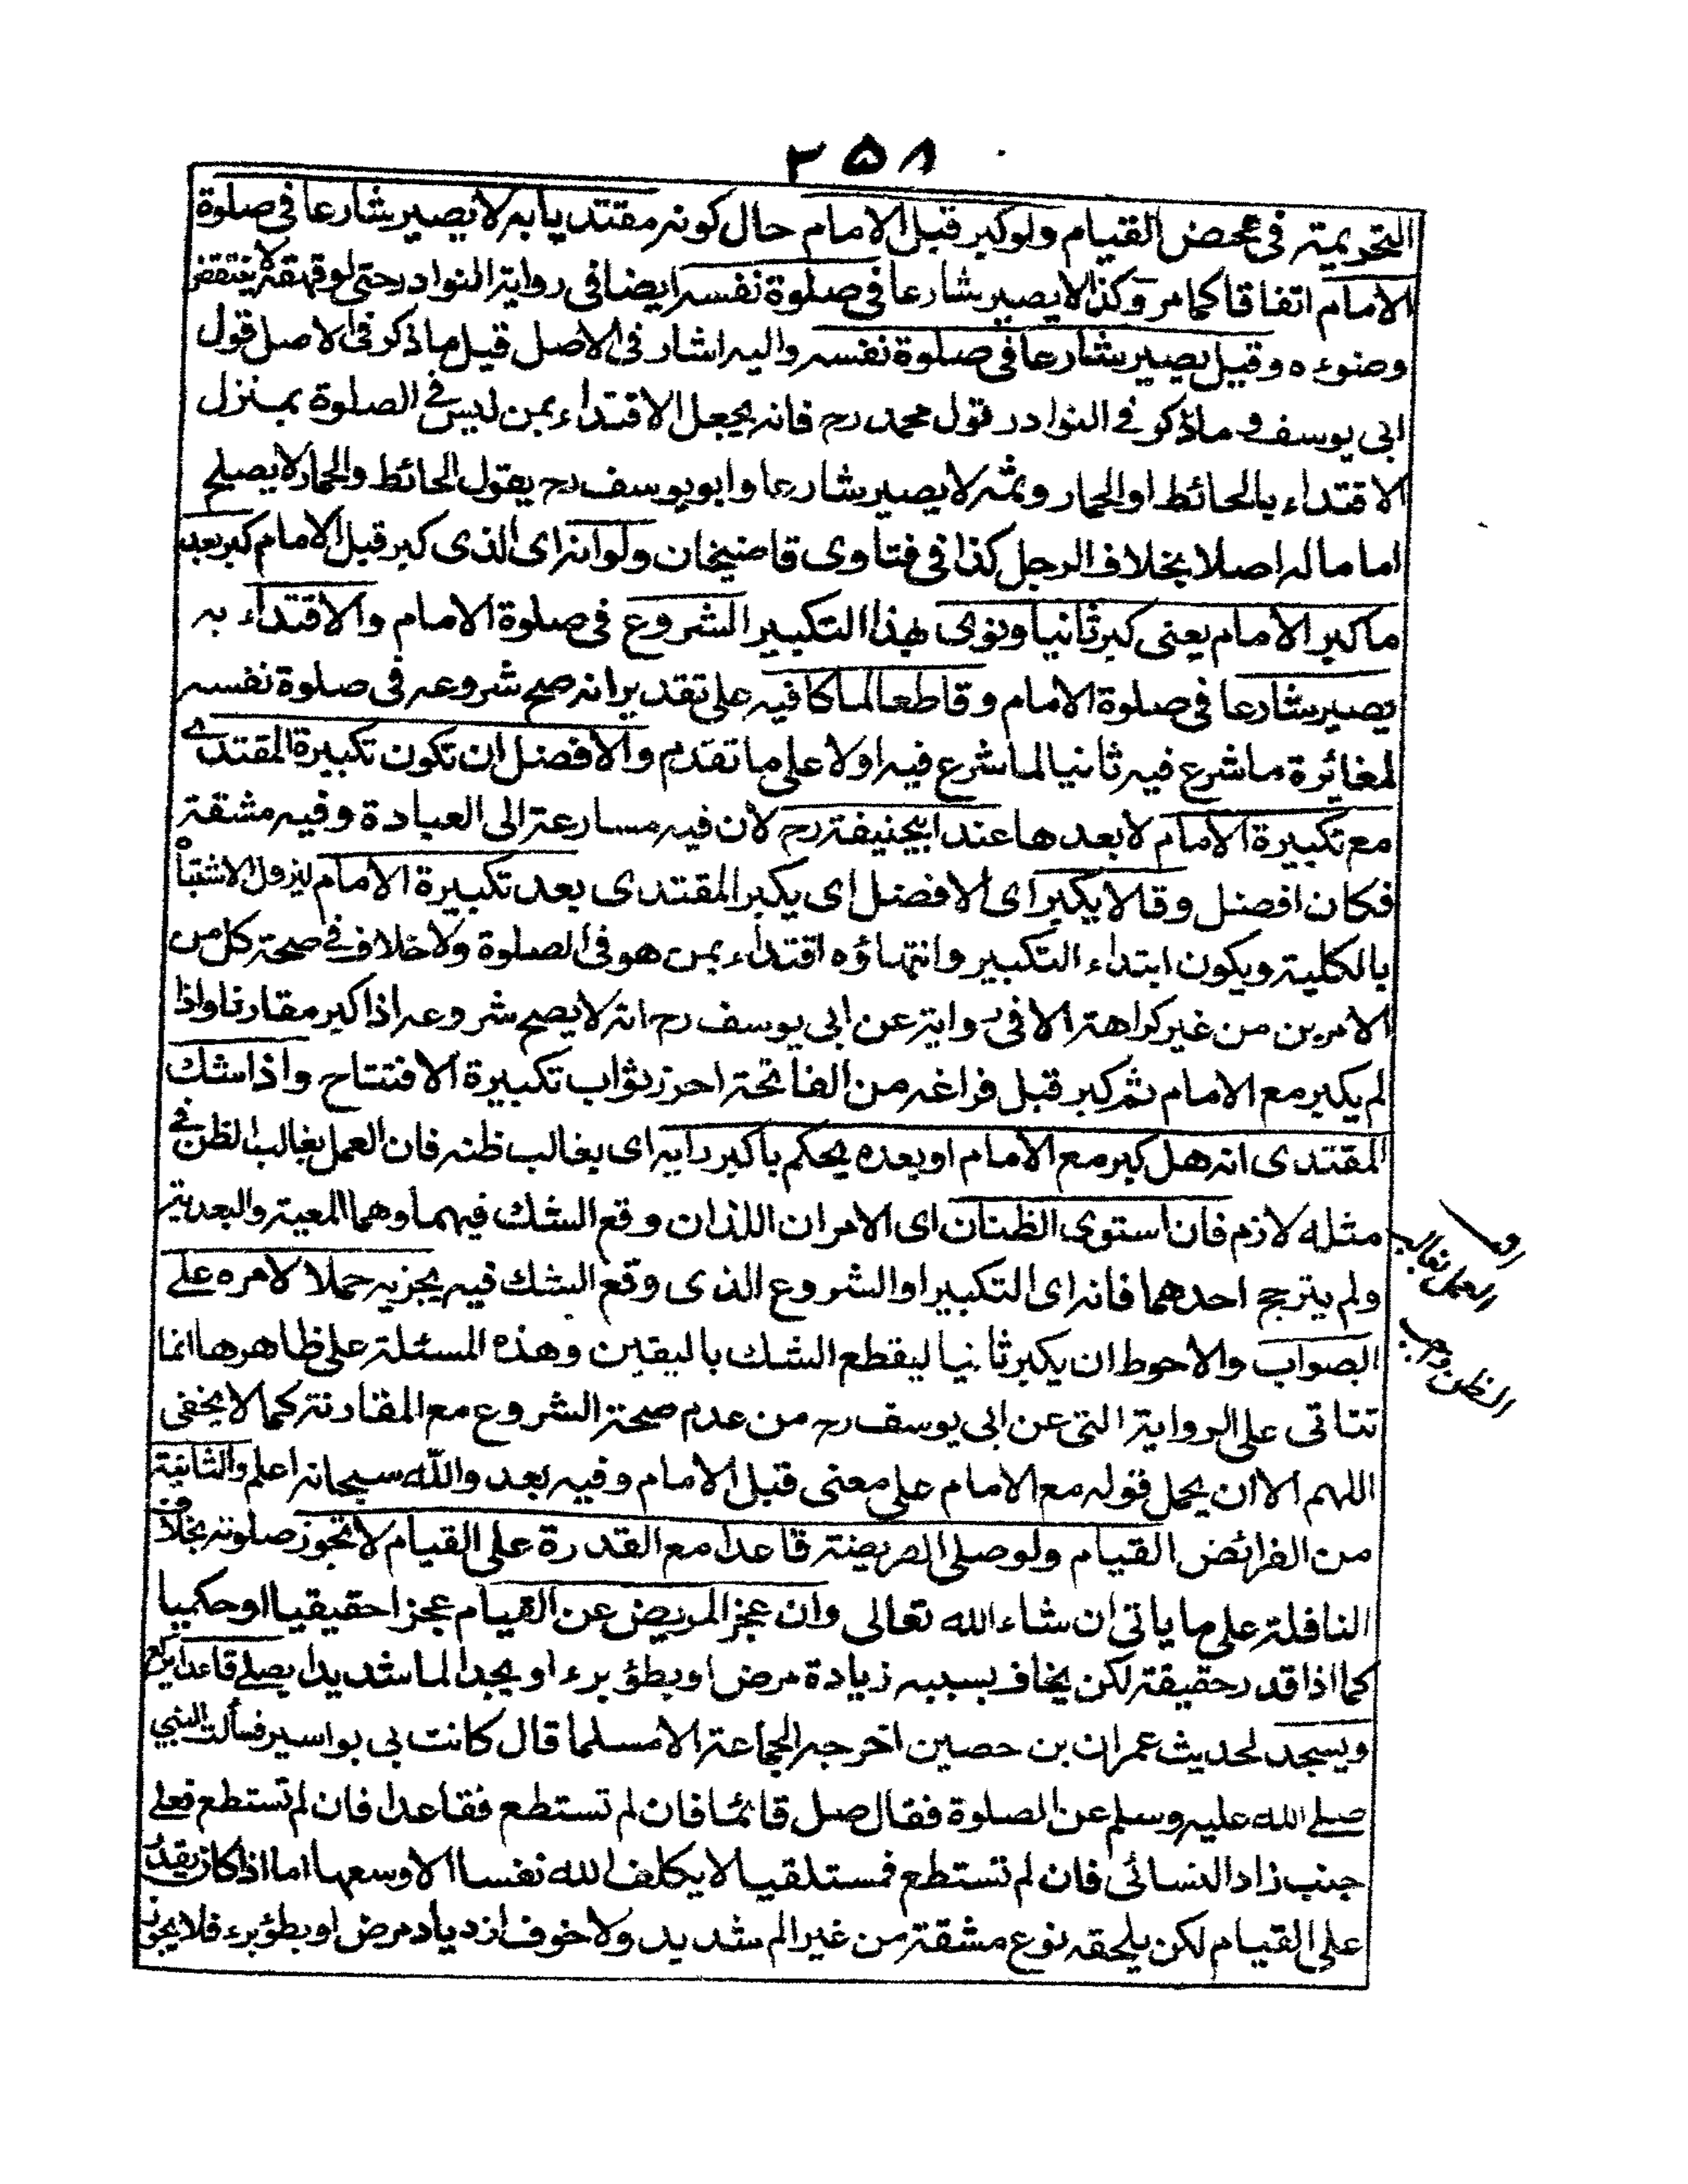 ٢٥٨
التحريمة فى محض القيام ولو كبر قبل الامام حال كونه مقتديا به لا يصير شارعا فى صلوة
الامام اتفاقا كما مر وكذا لا يصير شارعا فى صلوة نفسه ايضا فى رواية النوادر حتى لو قهقه لا ينتقض
وضوءه وقيل يصير شارعا فى صلوة نفسه واليه اشار فى الاصل قيل ما ذكر فى الاصل قول
ابى يوسف وما ذكر فى النوادر قول محمد رح فانه يجعل الاقتداء بمن ليس فى الصلوة بمنزل
الاقتداء بالحائط او الحمار وثمه لا يصير شارعا وابو يوسف رح يقول الحائط والحمار لا يصلح
اماما له اصلا بخلاف الرجل كذا فى فتاوى قاضيخان ولو انه اى الذى كبر قبل الامام كبر بعد
ما كبر الامام يعنى كبر ثانيا ونوى بهذا التكبير الشروع فى صلوة الامام والاقتداء به
يصير شارعا فى صلوة الامام وقاطعا لما كا فيه على تقدير انه صح شروعه فى صلوة نفسه
لمغائرة ما شرع فيه ثانيا لما شرع فيه اولا على ما تقدم والافضل ان تكون تكبيرة المقتدى
مع تكبيرة الامام لا بعدها عند ابيحنيفة رح لان فيه مسارعة الى العبادة وفيه مشقة
فكان افضل وقالا يكبر اى الافضل اى يكبر المقتدى بعد تكبيرة الامام ليزول الاشتباه
بالكلية ويكون ابتداء التكبير وانتهاؤه اقتداء بمن هو فى الصلوة ولا خلاف فى صحة كل من
الامرين من غير كراهة الا فى رواية عن ابى يوسف رح انه لا يصح شروعه اذا كبر مقارنا واذا
لم يكبر مع الامام ثم كبر قبل فراغه من الفاتحة احرز ثواب تكبيرة الافتتاح واذا شك
المقتدى انه هل كبر مع الامام او بعده يحكم باكبر رايه اى بغالب ظنه فان العمل بغالب الظن فى
مثله لازم فان استوى الظنان اى الامران اللذان وقع الشك فيهما وهما المعية والبعدية
ولم يترجح احدهما فانه اى التكبير او الشروع الذى وقع الشك فيه يجزيه حملا لامره على
الصواب والاحوط ان يكبر ثانيا ليقطع الشك باليقين وهذه المسئلة على ظاهرها انما
تتاتى على الرواية التى عن ابى يوسف رح من عدم صحة الشروع مع المقارنة كما لا يخفى
اللهم الا ان يحمل قوله مع الامام على معنى قبل الامام وفيه بعد والله سبحانه اعلم والثانية
من الفرائض القيام ولو صلى الفريضة قاعدا مع القدرة على القيام لا تجوز صلوته بخلاف
النافلة على ما ياتى ان شاء الله تعالى وان عجز المريض عن القيام عجزا حقيقيا او حكميا
كما اذا قدر حقيقة لكن يخاف بسببه زيادة مرض او بطؤ برء او يجد الما شديدا يصلى قاعدا يركع
ويسجد لحديث عمران بن حصين اخرجه الجماعة الا مسلما قال كانت بى بواسير فسألت النبي
صلى الله عليه وسلم عن الصلوة فقال صل قائما فان لم تستطع فقاعدا فان لم تستطع فعلى
جنب زاد النسائى فان لم تستطع فمستلقيا لا يكلف الله نفسا الا وسعها اما اذا كان يقدر
على القيام لكن يلحقه نوع مشقة من غير الم شديد ولا خوف ازدياد مرض او بطؤ برء فلا يجوز
العمل بغالب
الظن